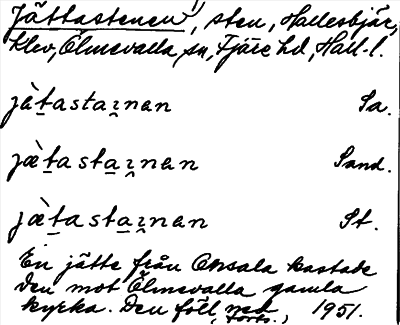 Jättastenen, sten, Hallesbjär,
Klev, Ölmevalla sn, Fjäre hd, Hall. l.
jæ̀t̲astai̯nan Sa.
jæ̀t̲asta̲i̯nan Sand.
jæ̀t̲asta̲i̯nan St.
En jätte från Onsala kastade
den mot Ölmevalla gamla
kyrka. Den föll ned
(forts.) 1951.